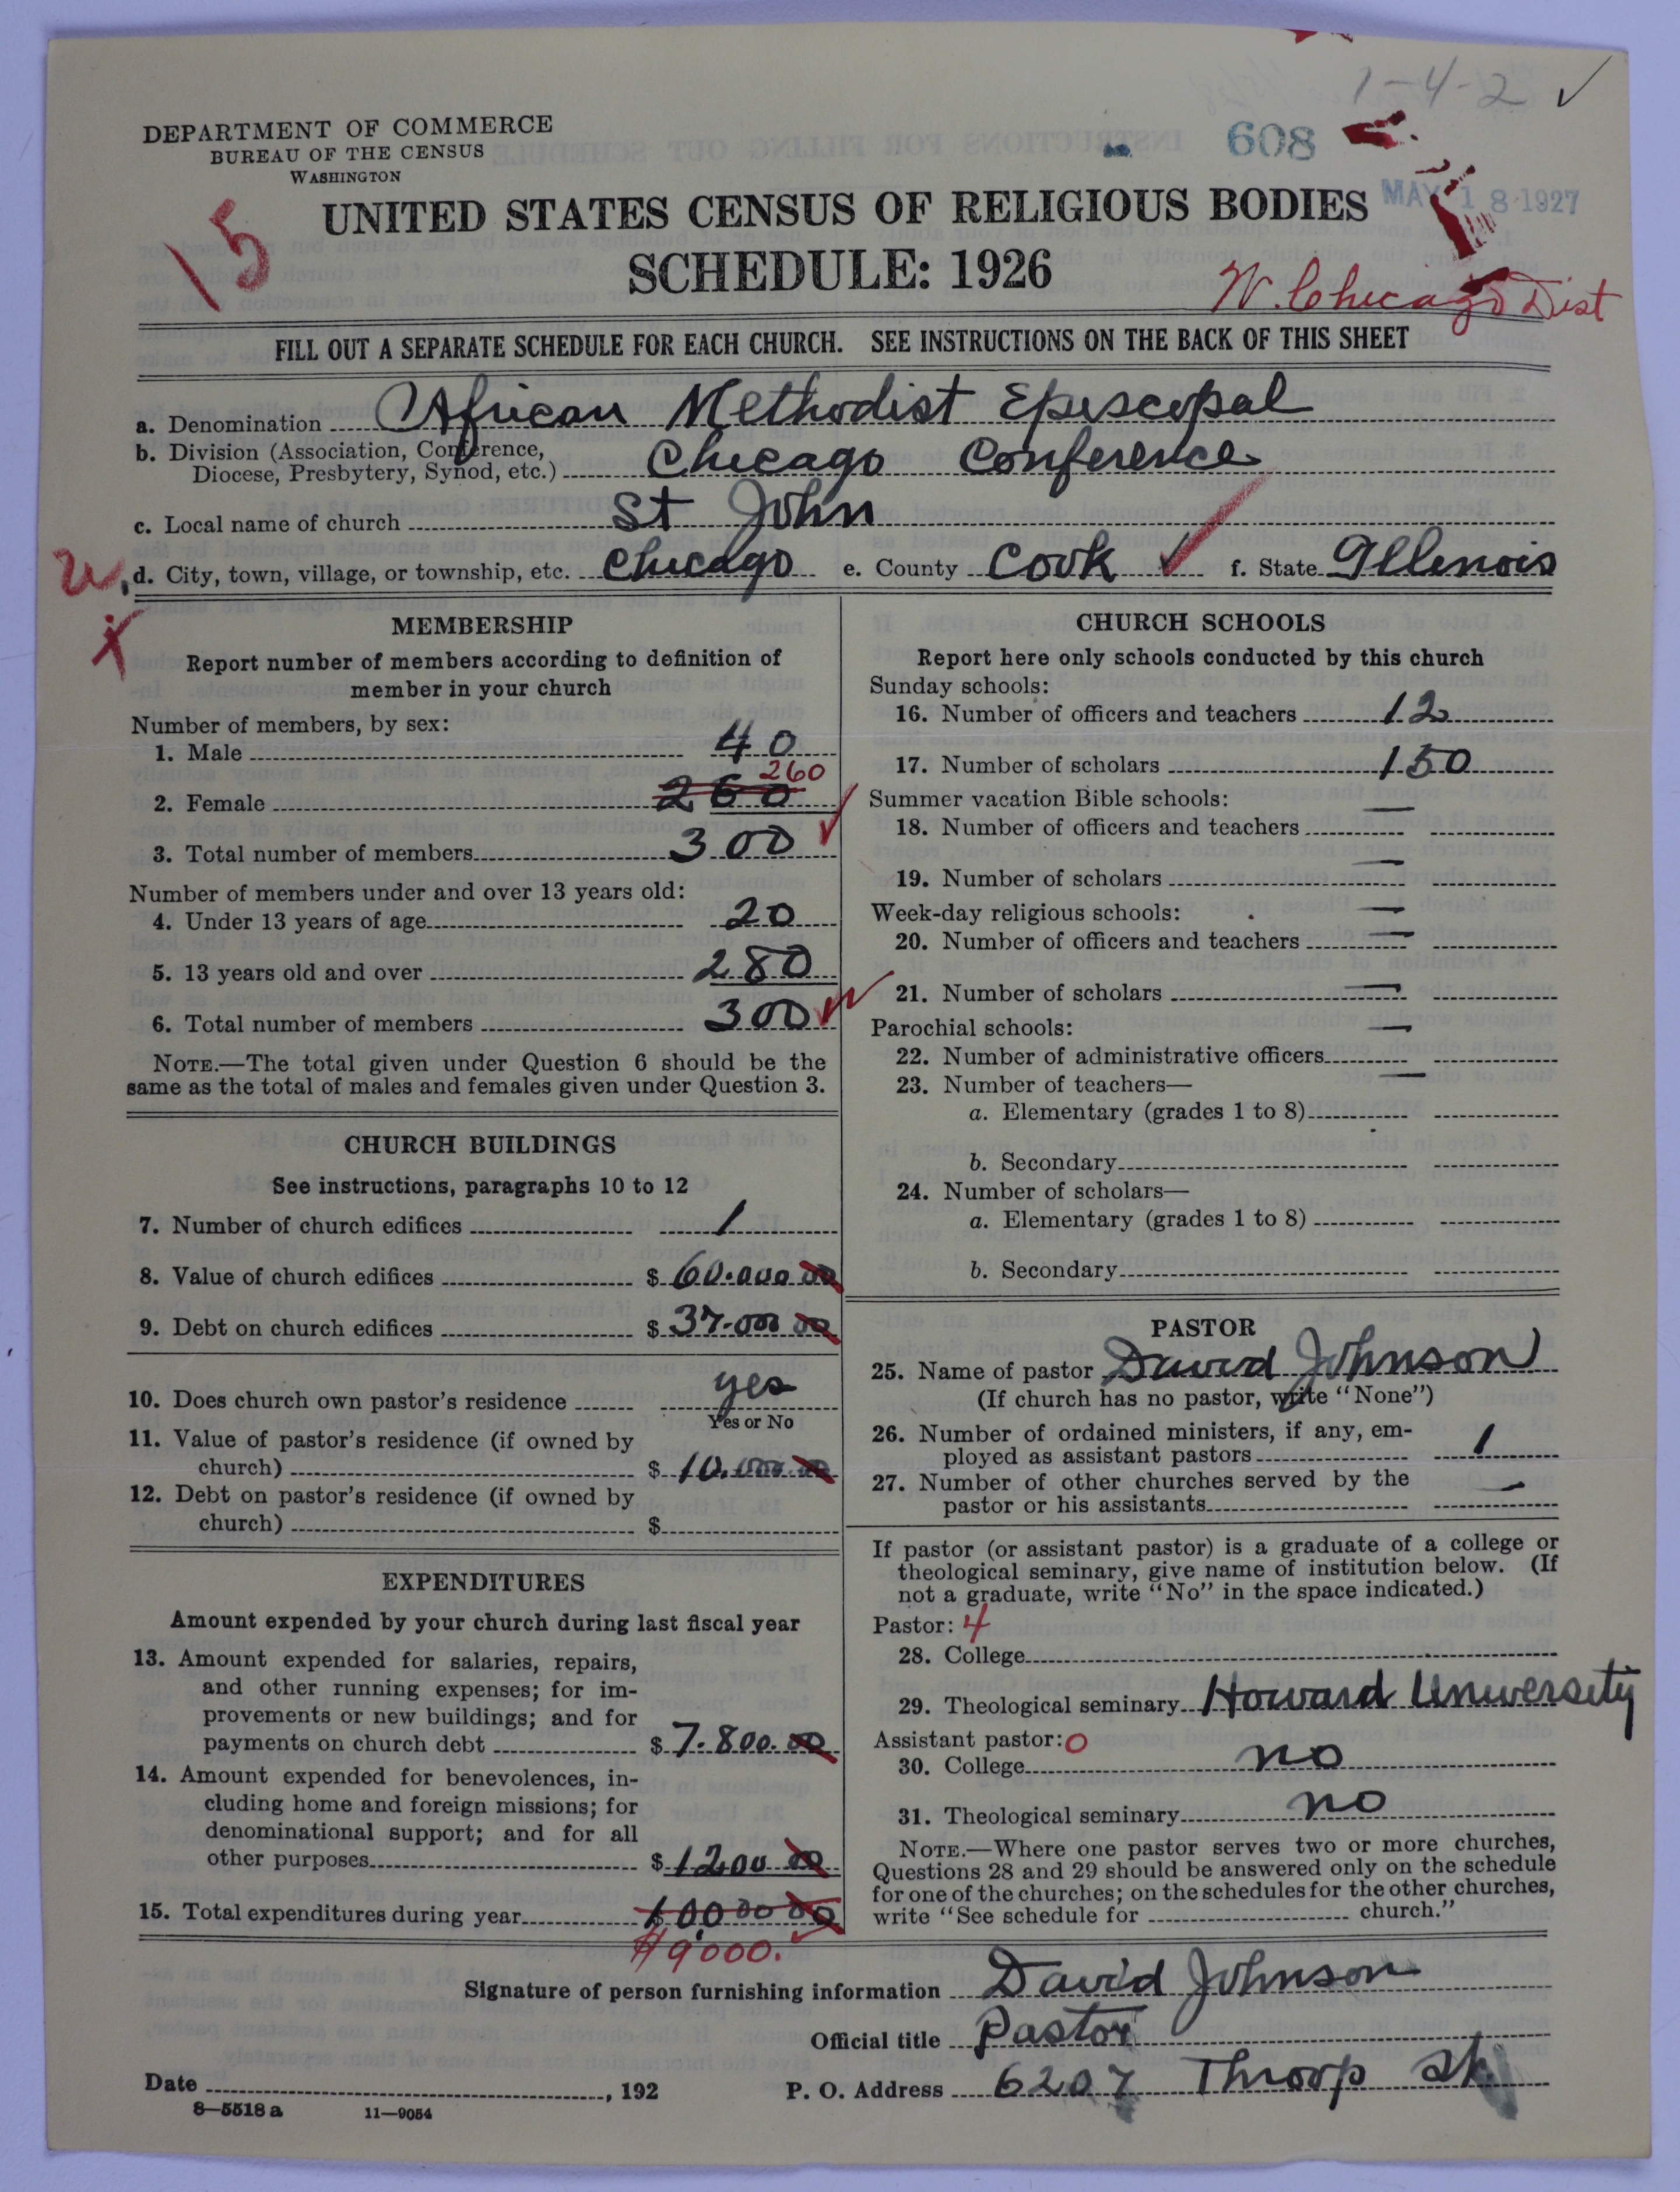 1-4-2 ✓
608
DEPARTMENT OF COMMERCE
BUREAU OF THE CENSUS
WASHINGTON
MAY 18 1927
15
UNITED STATES CENSUS OF RELIGIOUS BODIES
SCHEDULE: 1926
W. Chicago Dist
FILL OUT A SEPARATE SCHEDULE FOR EACH CHURCH. SEE INSTRUCTIONS ON THE BACK OF THIS SHEET
a. Denomination African Methodist Episcopal
b. Division (Association, Conference,
Diocese, Presbytery, Synod, etc.) Chicago Conference
c. Local name of church St John
d. City, town, village, or township, etc. Chicago e. County Cook ✓ f. State Illenois
MEMBERSHIP
Report number of members according to definition of
member in your church
Number of members, by sex:
1. Male 40
260
2. Female 260
3. Total number of members 300 ✓
Number of members under and over 13 years old:
4. Under 13 years of age 20
5. 13 years old and over 280
6. Total number of members 300
NOTE.—The total given under Question 6 should be the
same as the total of males and females given under Question 3.
CHURCH BUILDINGS
See instructions, paragraphs 10 to 12
7. Number of church edifices 1
8. Value of church edifices $ 60.000 00
9. Debt on church edifices $ 37.000 00
10. Does church own pastor's residence yes
Yes or No
11. Value of pastor's residence (if owned by
church) $ 10.000 00
12. Debt on pastor's residence (if owned by
church) $
EXPENDITURES
Amount expended by your church during last fiscal year
13. Amount expended for salaries, repairs,
and other running expenses; for im-
provements or new buildings; and for
payments on church debt $ 7.800.00
14. Amount expended for benevolences, in-
cluding home and foreign missions; for
denominational support; and for all
other purposes $ 1200 00
15. Total expenditures during year $ 10000 00
$9,000. ✓
CHURCH SCHOOLS
Report here only schools conducted by this church
Sunday schools:
16. Number of officers and teachers 12
17. Number of scholars 150
Summer vacation Bible schools:
18. Number of officers and teachers —
19. Number of scholars —
Week-day religious schools: —
20. Number of officers and teachers —
21. Number of scholars —
Parochial schools: —
22. Number of administrative officers —
23. Number of teachers—
a. Elementary (grades 1 to 8)
b. Secondary
24. Number of scholars—
a. Elementary (grades 1 to 8)
b. Secondary
PASTOR
25. Name of pastor David Johnson
(If church has no pastor, write "None")
26. Number of ordained ministers, if any, em-
ployed as assistant pastors 1
27. Number of other churches served by the
pastor or his assistants —
If pastor (or assistant pastor) is a graduate of a college or
theological seminary, give name of institution below. (If
not a graduate, write "No" in the space indicated.)
Pastor: 4
28. College
29. Theological seminary Howard University
Assistant pastor: 0
30. College no
31. Theological seminary no
NOTE.—Where one pastor serves two or more churches,
Questions 28 and 29 should be answered only on the schedule
for one of the churches; on the schedules for the other churches,
write "See schedule for church."
Signature of person furnishing information David Johnson
Official title Pastor
Date , 192 P. O. Address 6207 Throop St.
8—5518 a 11—9054